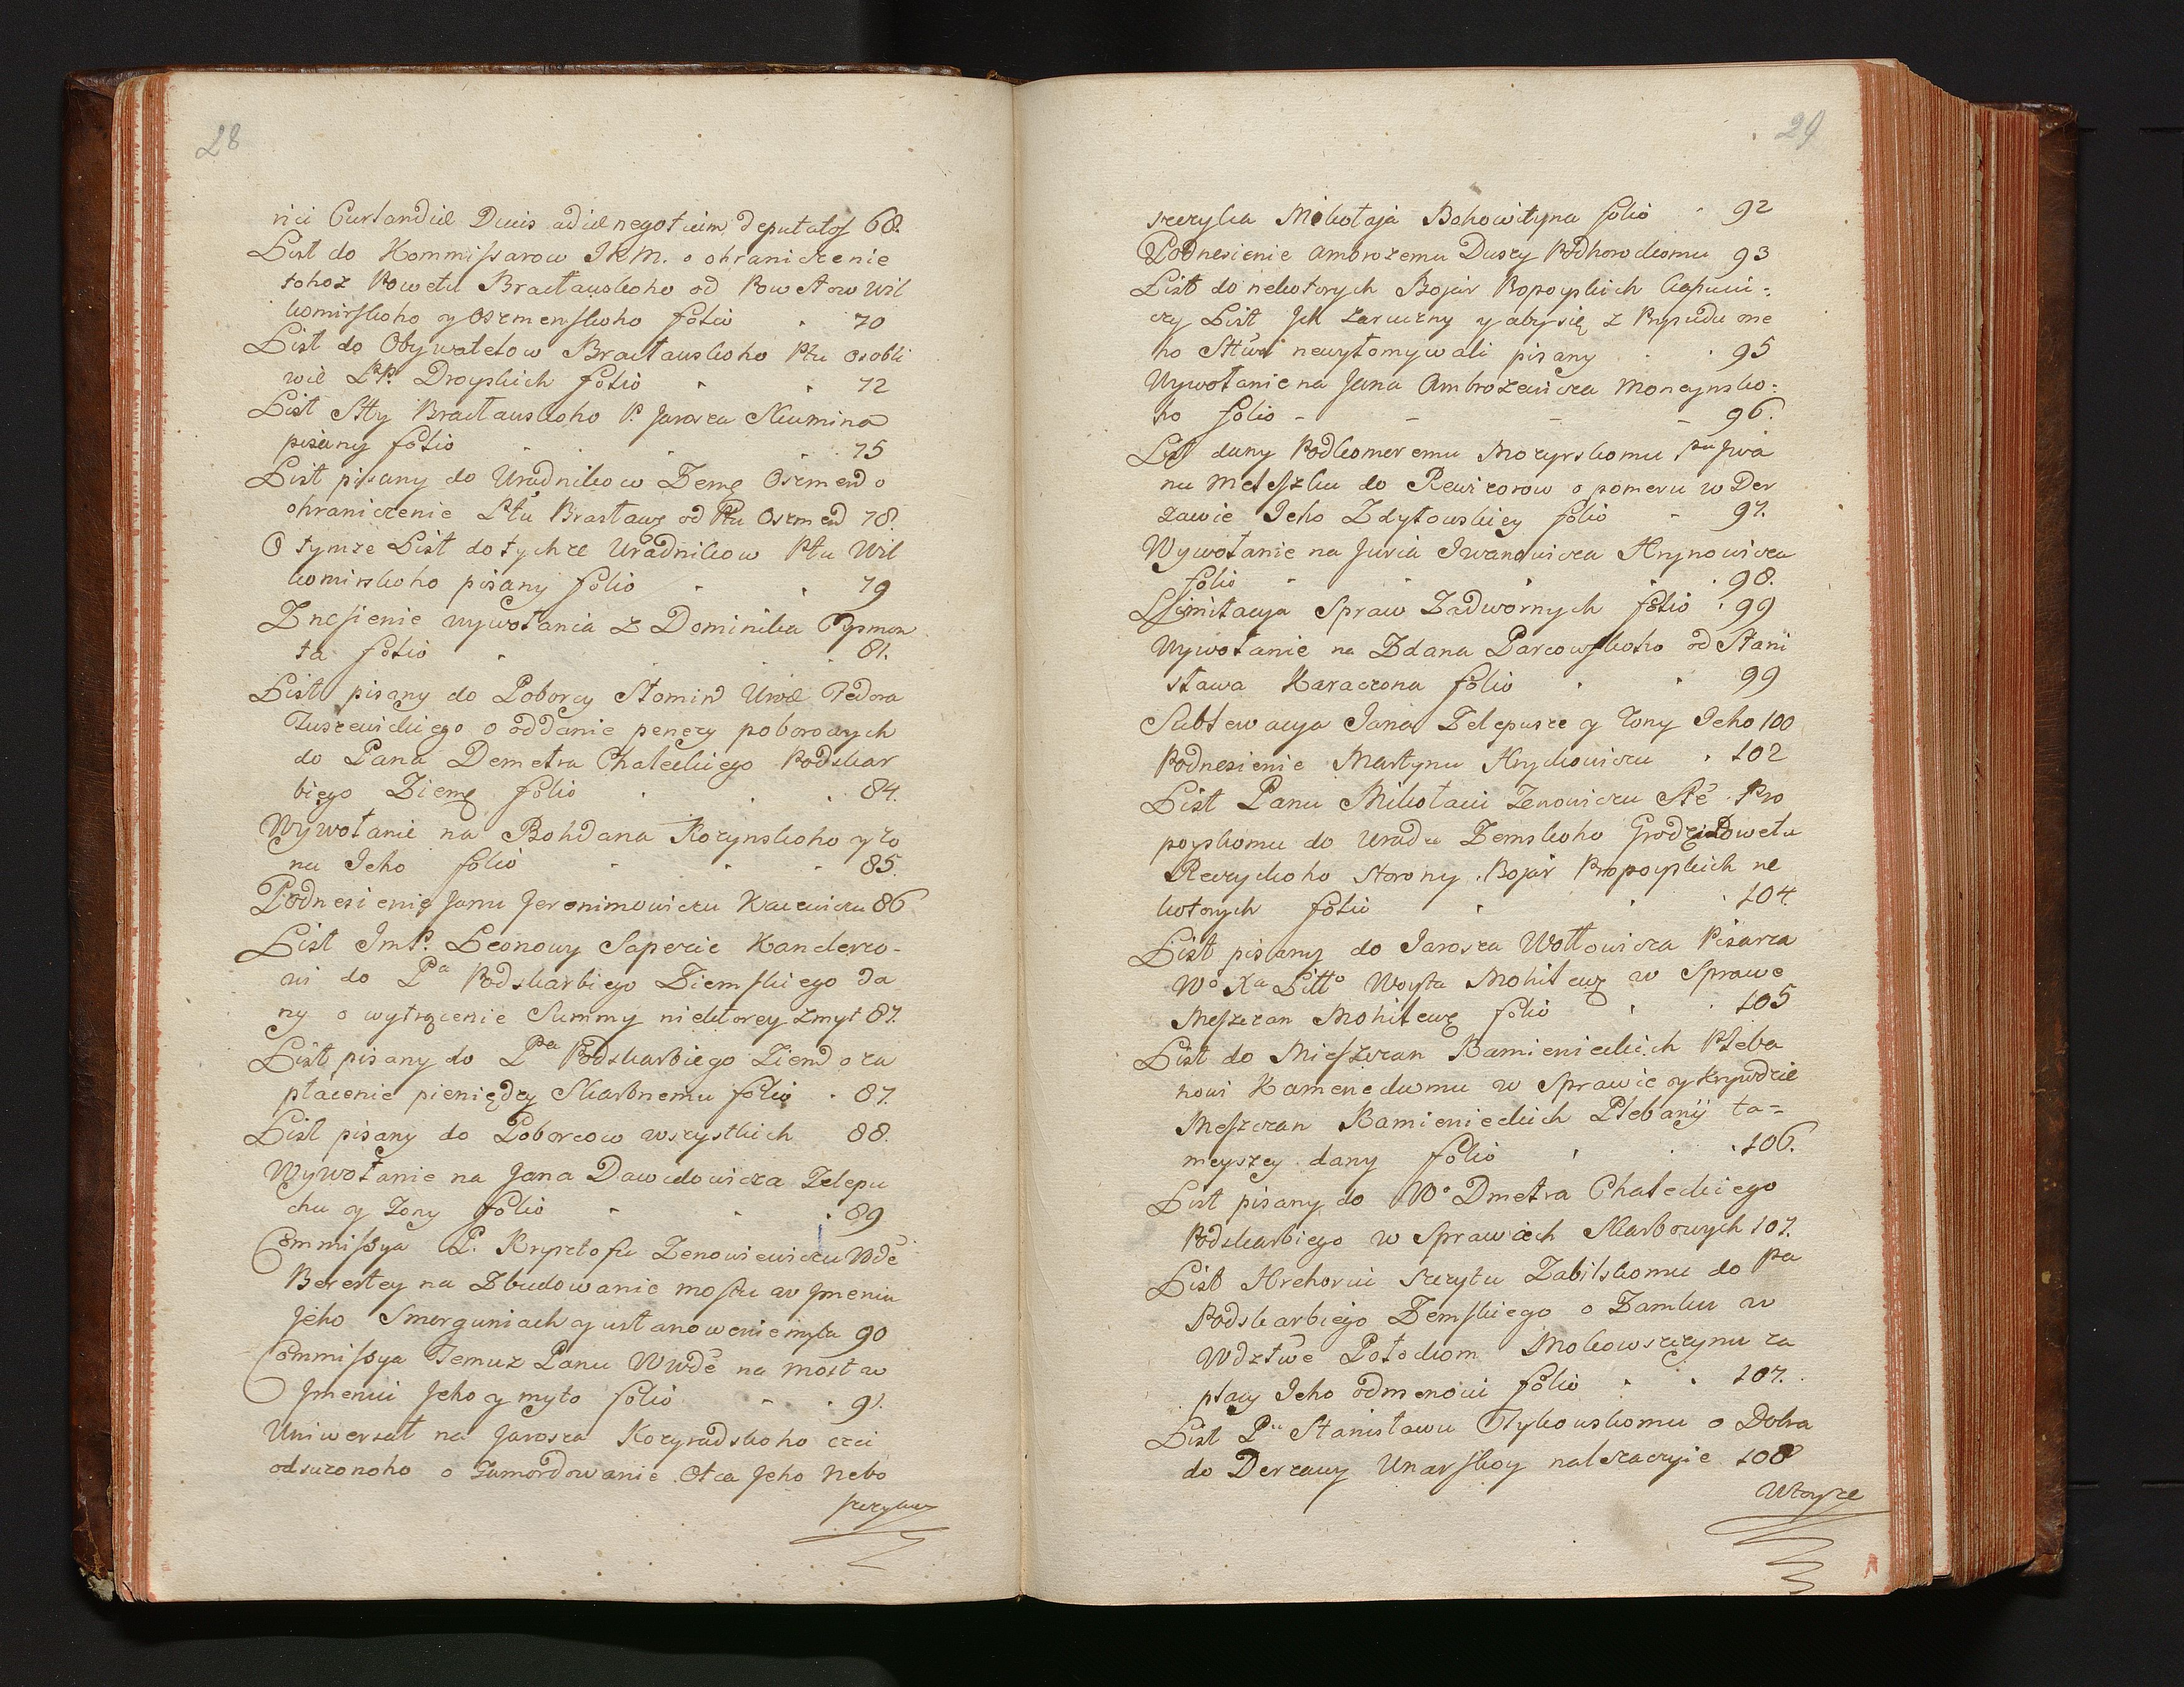 28
rici Curlandiæ Ducis ad id negotium deputatos 68.
List do Kommissarow JKM. o ohraniczenie
tohoż Powetu Bracławskoho od Powetow Wil
komirskoho y Oszmenskoho folio 70
List do Obywatelow Bracławskoho Ptu osobli
wie Druyskich folio 72
List Stty Bracławskoho P. Jarosza Neumina
pisany folio 75
List pisany do Uradnikow Zemę Oszmend o
ohraniczenie Ptu Brasławę od Ptu Oszmend 78.
O tymże List do tychże Uradnikow Ptu Wil
komirskoho pisany folio 79
Znesienie wywołania z Dominika
ta folio 81.
List pisany do Poborcy Słomind Fedora
Tuszewickiego o oddanie penęzy poborowych
do Pana Demetra Chaleckiego Podskar
biego Ziemę folio 84.
Wywołanie na Bohdana Kozynskoho y żo
nu Jeho folio 85.
Podnesienie Janu Jeronimowiczu 86
List ImP. Leonowy Sapezie Kanclerzo-
wi do Pa Podskarbiego Ziemskiego da
ny o wytrącenie Summy niektorey z myt 87.
List pisany do Pa Podskarbiego Ziemd o za
płacenie pieniędzy Skarbnemu folio 87.
List pisany do Poborcow wszystkich 88.
Wywołanie na Jana Dawidowicza Zelepu
chu y Żony folio 89
Commissya P. Krysztofu Zenowiewiczu Wdě
Berestey na Zbudowanie mostu w Jmeniu
Jeho Smorguniach y ustanowenie myta 90
Commissya Temuz Panu Wwdě na most w
Jmeniu Jeho y myto folio 91.
Uniwersał na Jarosza Kozyradskoho czci
odsuzonoho o Zamordowanie Otca Jeho Nebo
szczyka
29
szczyka Mikołaja Bohowityna folio 92
Podnesienie Ambrozemu Duszy Podhorodkomu 93
List do nekotorych Bojar Propoyskich
czy List Jch zaruczny y aby się z Prysudu one
ho Sttwi newyłomywali pisany 95
Wywołanie na Jana Ambrożewicza Monczynsko-
ho folio 96.
List dany Podkomoremu Mozyrskomu Pu Jwa
nu Meleszku do Rewizorow o pomeru w Der
żawie Jeho Zdytowskiey folio 97.
Wywołanie na Juria Iwanowicza Hrynowicza
folio 98.
Limitacya Spraw Zadwornych folio 99
Wywołanie na Zdana Parcowskoho od Stani
sława Karaczona folio 99
Sublewacya Jana Zelepusze y Żony Jeho 100
Podnesienie Martynu Hryckowiczu 102
List Panu Mikołaiu Zenowiczu Stě Pro
poyskomu do Uradu Zemskoho Grodz Powetu
Reczyckoho Storony Bojar Propoyskich ne
kotorych folio 104.
List pisany do Jarosza Wołłowicza Pisarza
Wo Xa Litto Woyta Mohilewę w Sprawe
Meszczan Mohilewę folio 105
List do Mieszczan Kamienieckich Pleba
nowi Kameneckomu w Sprawie y Krywdzie
Meszczan Kamienieckich Plebanij ta-
meyszey dany folio 106.
List pisany do Wo Dmetra Chaleckiego
Podskarbiego w Sprawach Skarbowych 107.
List Hrehoriu Szczytu Zabilskomu do Pa
Podskarbiego Zemskiego o Zamku w
Wdztwě Połockom Mokowszczynu za
płacy Jeho odmenowi folio 107.
List Pu Stanisławu Tykowskomu o Dobra
do Derzawy należaczyie 108
Wtoysze